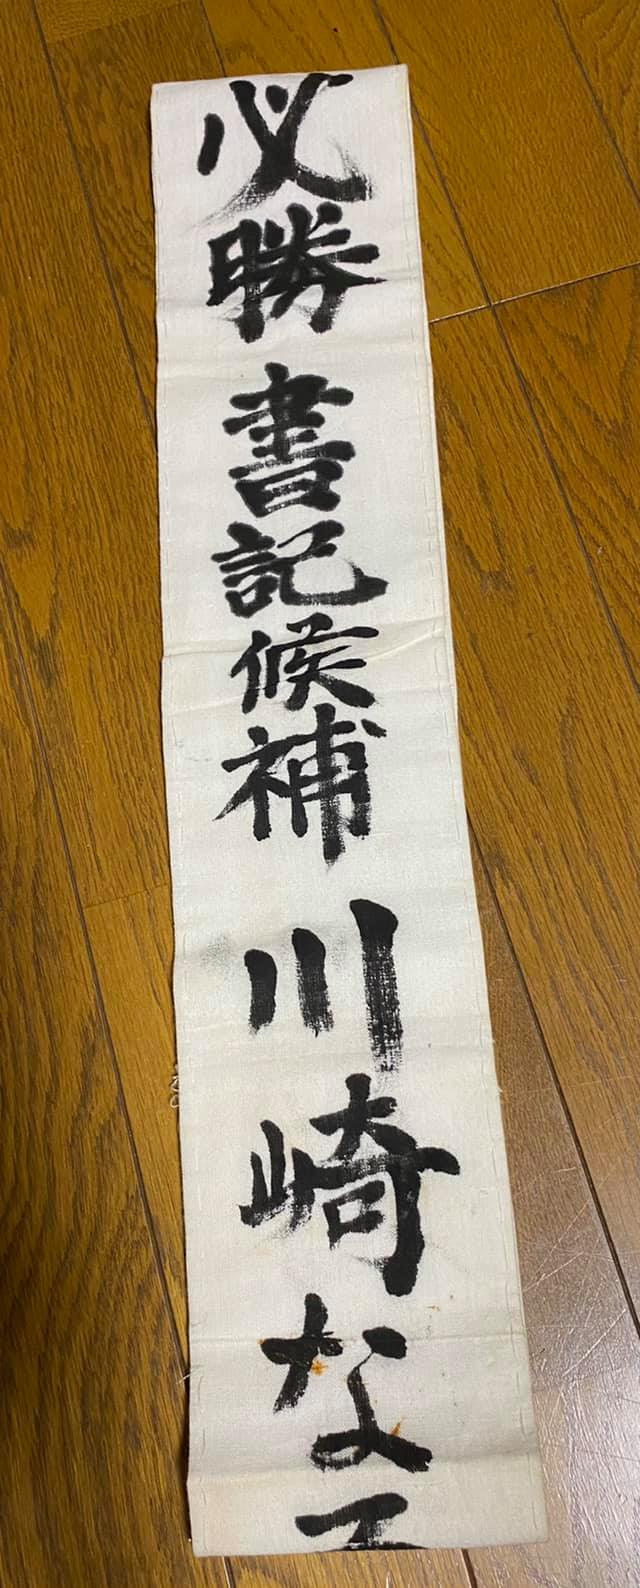 必勝 書記候補 川崎な